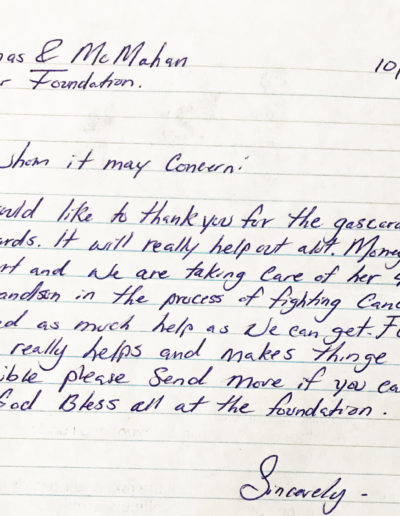 as & McMahan
10/
r Foundation.
whom it may Concern:
ould like to thank you for the gascard
ards. It will really help out alot. Money
rt and we are taking care of her
andson in the process of fighting Canc
ed as much help as we can get. F
really helps and makes thinge
ible please Send move if you ca
God Bless all at the foundation.
Sincerely -